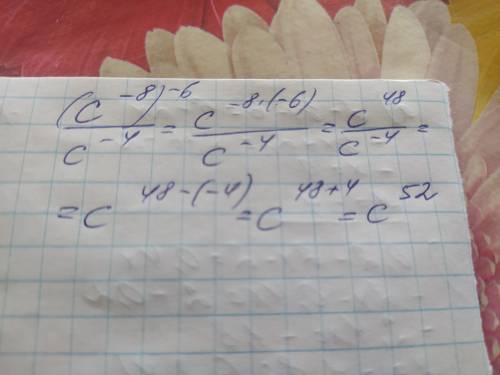 (c^-8)^-6/c^-4 = c^-8·(-6)/c^-4 = c^48/c^-4 =
= c^48-(-4) = c^48+4 = c^52